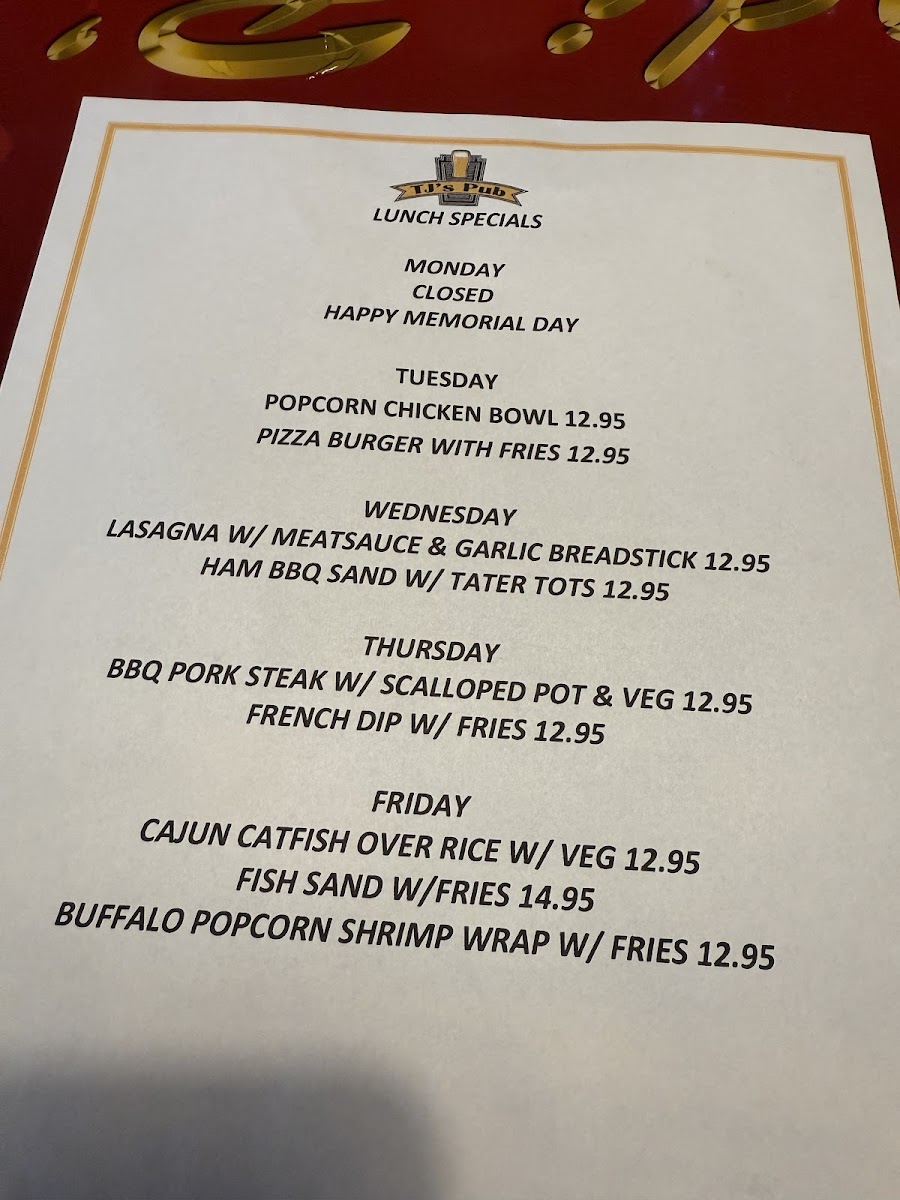 TJ's Pub
LUNCH SPECIALS
MONDAY
CLOSED
HAPPY MEMORIAL DAY
TUESDAY
POPCORN CHICKEN BOWL 12.95
PIZZA BURGER WITH FRIES 12.95
WEDNESDAY
LASAGNA W/ MEATSAUCE & GARLIC BREADSTICK 12.95
HAM BBQ SAND W/ TATER TOTS 12.95
THURSDAY
BBQ PORK STEAK W/ SCALLOPED POT & VEG 12.95
FRENCH DIP W/ FRIES 12.95
FRIDAY
CAJUN CATFISH OVER RICE W/ VEG 12.95
FISH SAND W/FRIES 14.95
BUFFALO POPCORN SHRIMP WRAP W/ FRIES 12.95